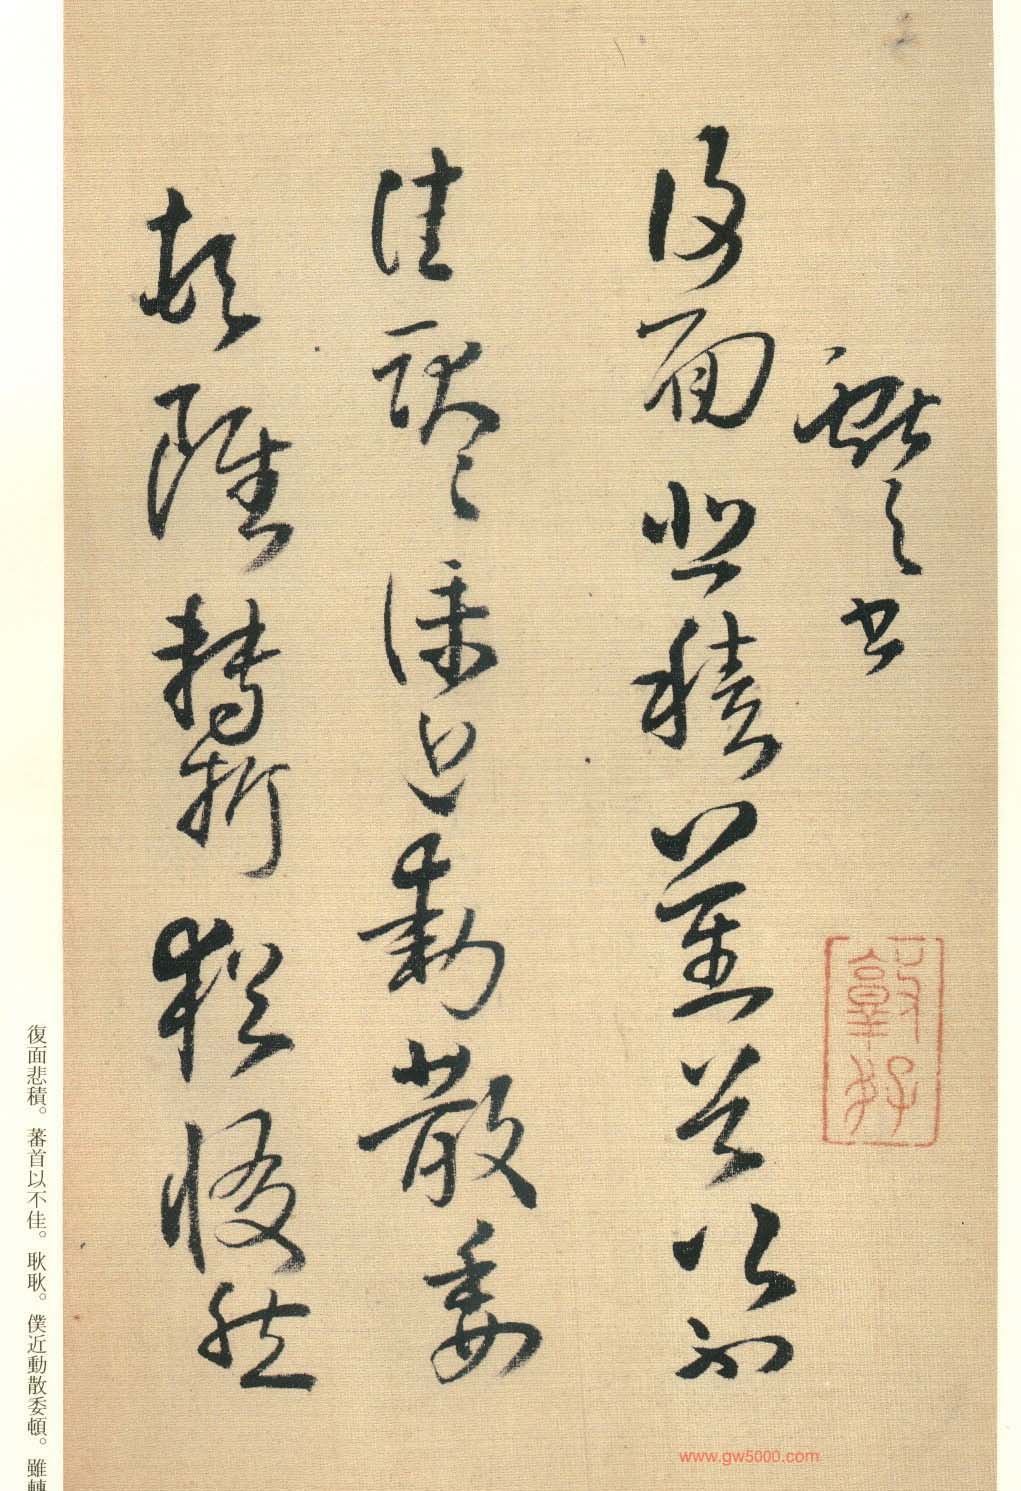 獻之書
復面悲積蕃首以不
佳耿耿僕近動散委
頓雖轉折猶悵然
復面悲積。蕃首以不佳。耿耿。僕近動散委頓。雖轉
www.gw5000.com